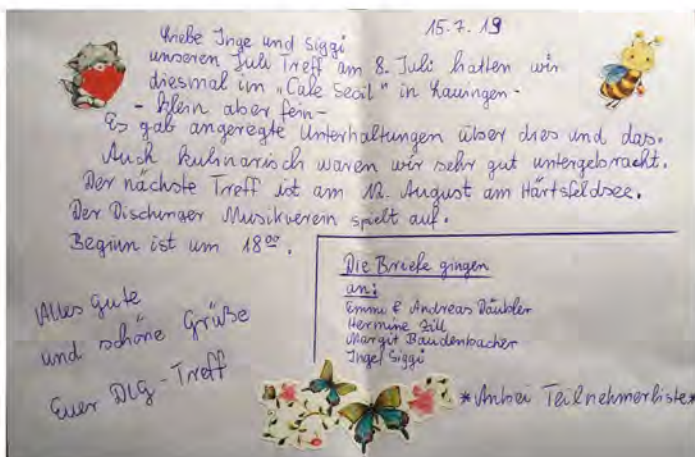 15.7.19
Liebe Inge und Siggi
unseren Juli Treff am 8. Juli hatten wir
diesmal im „Cafe Seoil" in Lauingen -
- klein aber fein -
Es gab angeregte Unterhaltungen über dies und das.
Auch kulinarisch waren wir sehr gut untergebracht.
Der nächste Treff ist am 12. August am Härtsfeldsee.
Der Dischinger Musikverein spielt auf.
Beginn ist um 18⁰⁰.
Die Briefe gingen
an:
Emmi & Andreas Däubler
Hermine Zill
Margit Baudenbacher
Inge/ Siggi
Alles Gute
und schöne Grüße
Euer DLG-Treff
*Anbei Teilnehmerliste*